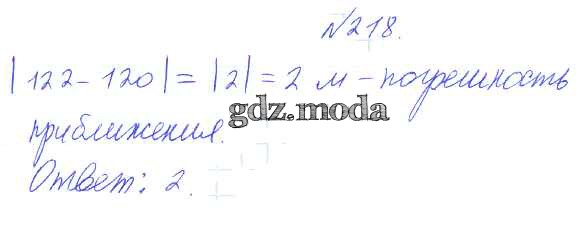 №218.
|122-120|=|2|=2 м - погрешность
gdz.moda
приближения.
Ответ: 2.